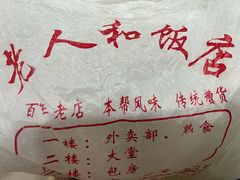 老人和饭店
百年老店 本帮风味 传统糟货
一楼：外卖部、熟食
二楼：大堂
楼：包房